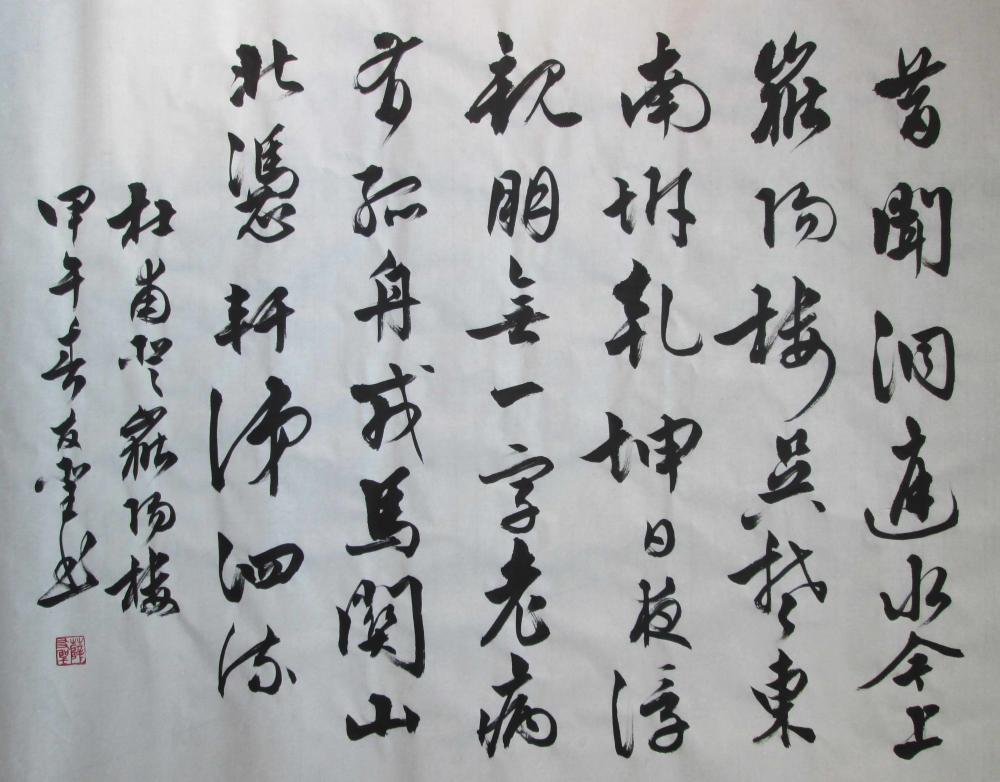 昔聞洞庭水今上
嶽陽樓吳楚東
南坼乾坤日夜浮
親朋無一字老病
有孤舟戎馬関山
北憑軒涕泗流
杜甫登嶽陽樓
甲午春友聖书
薛友聖